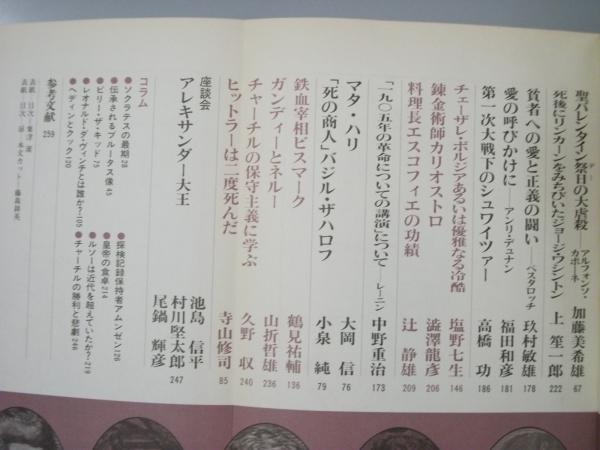 聖バレンタイン祭日の大虐殺 アルフォンソ・カポーネ 加藤美希雄 67
死後にリンカーンをみちびいたジョージ・ワシントン 上 笙一郎 222
貧者への愛と正義の闘い―ペスタロッチ 玖村敏雄 178
愛の呼びかけに―アンリ・デュナン 福田和彦 181
第一次大戦下のシュワイツァー 高橋 功 186
チェーザレ・ボルジアあるいは優雅なる冷酷 塩野七生 146
錬金術師カリオストロ 澁澤龍彦 206
料理長エスコフィエの功績 辻 静雄 209
「一九〇五年の革命についての講演」について―レーニン 中野重治 173
マタ・ハリ 大岡 信 76
「死の商人」バジル・ザハロフ 小泉 純 79
鉄血宰相ビスマーク 鶴見祐輔 136
ガンディーとネルー 山折哲雄 236
チャーチルの保守主義に学ぶ 久野 収 240
ヒットラーは二度死んだ 寺山修司 85
座談会
アレキサンダー大王 池島 信平
村川堅太郎 247
尾鍋 輝彦
コラム
●ソクラテスの最期 28
●伝承されるブルータス像 45
●ビリー・ザ・キッド 75
●レオナルド・ダ・ヴィンチとは誰か? 105
●ヘディンとクック 120
●探検記録保持者アムンゼン 126
●皇帝の食卓 214
●ルソーは近代を超えていたか? 219
●チャーチルの勝利と悲劇 246
参考文献 259